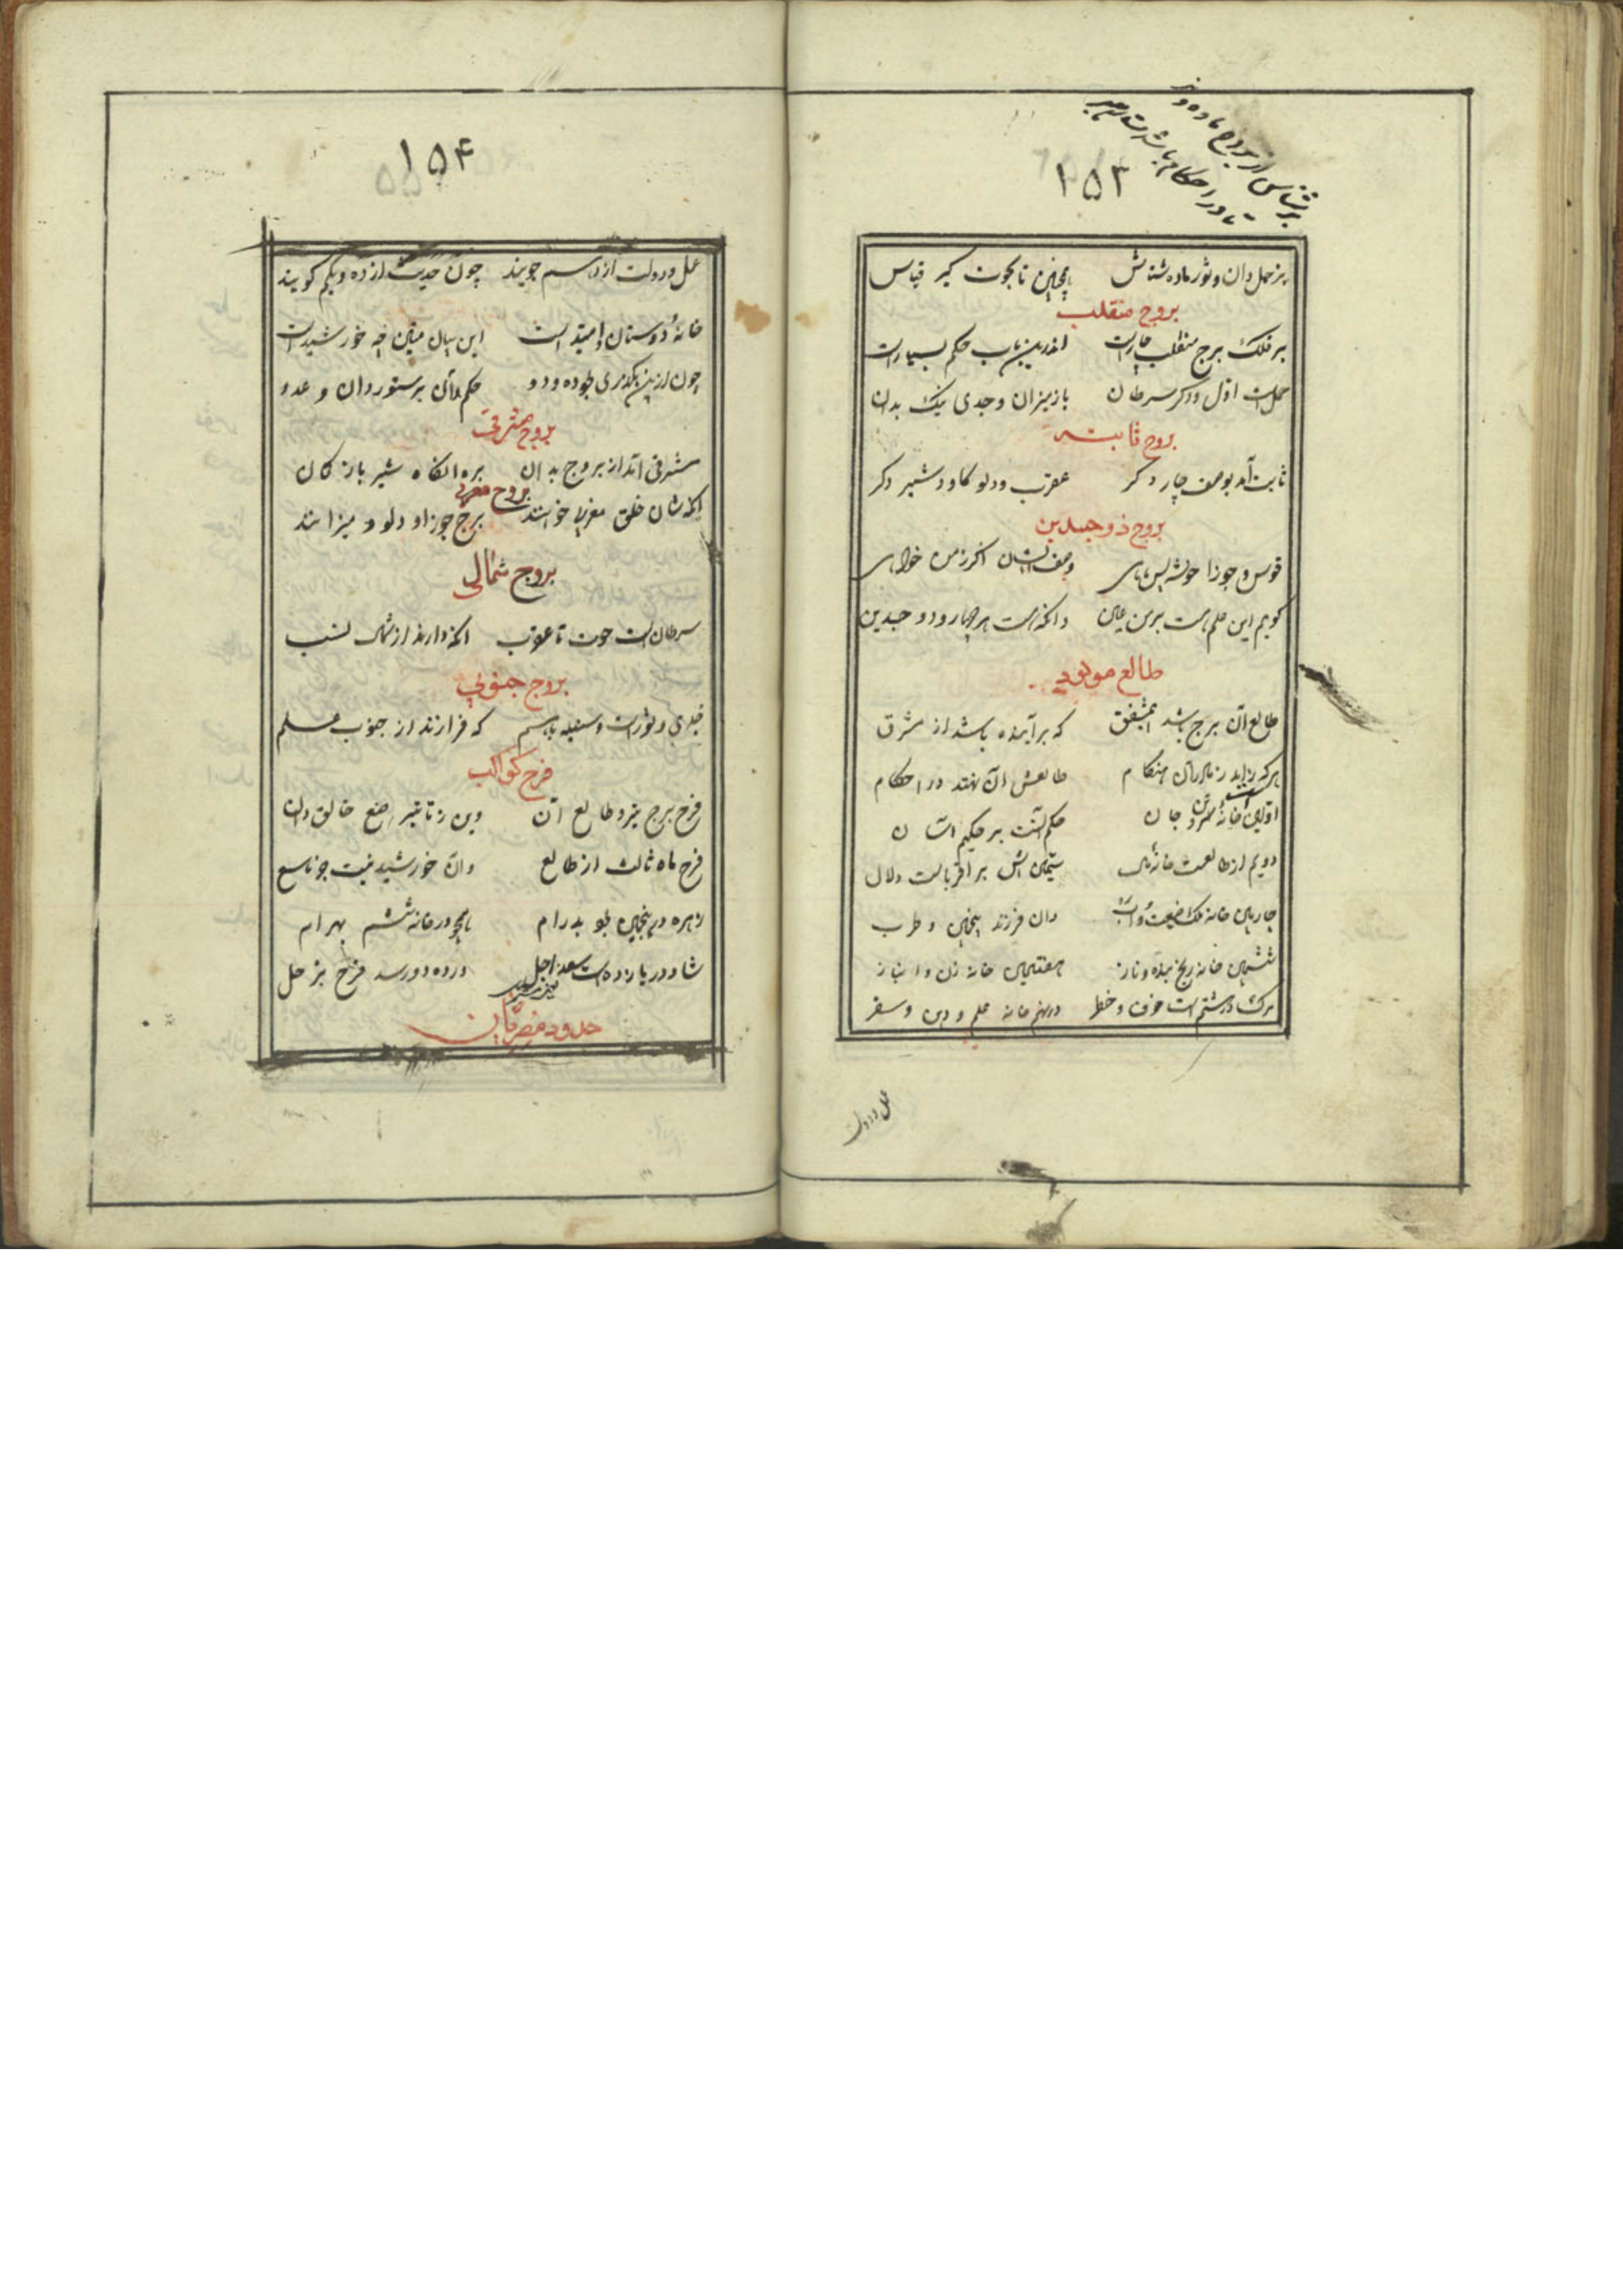 ۱۵۳
نر حمل دان و ثور ماده شناس همچنین تا بحوت گیر قیاس
بروج منقلب
بر فلک برج منقلب چارست اندرین باب حکم بسیارست
حملست اول و دگر سرطان باز میزان و جدی نیک بدان
بروج ثابته
ثابت آمد بوصف چار دگر عقرب و دلو گاو و شیر دگر
بروج ذو جسدین
قوس و جوزا خوشه پس ماهی وصف ایشان اگر ز من خواهی
گویم این علم هست برمن عین دانکه هست هر چهار ذو جسدین
طالع مولود
طالع آن برج باشد ای مشفق که برآینده باشد از مشرق
هرکه زاید ز مادر آن هنگام طالعش آن نهند در احکام
اولین خانهٔ تن و جان حکم آنست بر حکیم آسان
دویم از طالعت خانهٔ مال سیمین اش بر اقربا است دلال
چارمین خانه ملک ضیعت و اب دان فرزند پنجمین و طرب
ششمین خانه رنج بنده و ناز هفتمین خانه زن و انباز
مرگ در هشتم است خوف و خطر در نهم خانه علم و دین و سفر
عمل و دولت
۱۵۴
عمل و دولت از دهم جویند چون حدیث از ده و یکم گویند
خانهٔ دوستان و امید است این بیان مبین چه خورشید است
چون ازین بگذری بود ده و دو حکم آن بر ستوردان و عدو
بروج مشرقی
مشرقی آمد از بروج بدان بره آنگاه شیر باز کمان
بروج مغربی
آنکه شان خلق مغربی خوانند برج جوزا و دلو و میزانند
بروج شمالی
سرطان است حوت تا عقرب آنکه دارند از شمال نسب
بروج جنوبی
جدی و ثورست و سنبله باسم که فرازند از جنوب علم
فرح کواکب
فرح برج تیر و طالع آن وین ز تاثیر صنع خالق دان
فرح ماه ثالث از طالع وان خورشید نیست جز تاسع
زهره در پنجمین بود پدرام همچو در خانه ششم بهرام
شاد در یازدهست سعد اجل در ده و دو رسد فرح بزحل
حدود مصریان